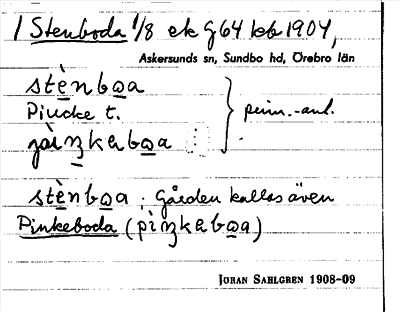 1 Stenboda 1/8 ek G64 kb 1904,
Askersunds sn, Sundbo hd, Örebro län
stènbωa
Pincke t.
pìŋkabωa
prim.-anl.
stènbωa ; Gården kallas även
Pinkeboda (pìŋkabωa)
JÖRAN SAHLGREN 1908-09